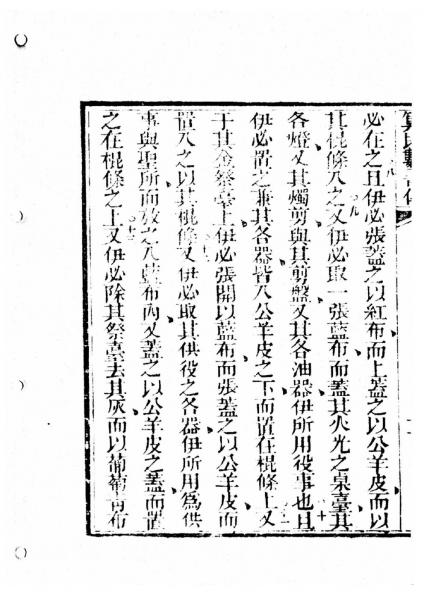 必在之且伊必張蓋之以紅布而上蓋之以公羊皮而以
其棍條入之又伊必取一張藍布而蓋其火光之桌臺其
各燈又其燭剪與其剪盤又其各油器伊所用役事也且
伊必置之兼其各器皆入公羊皮之下而置在棍條上又
于其金祭臺上伊必張開以藍布而張蓋之以公羊皮而
置入之以其棍條又伊必取其供役之各器伊所用爲供
事與聖所而放之入藍布內又蓋之以公羊皮之蓋而置
之在棍條之上又伊必除其祭臺去其灰而以葡萄青布